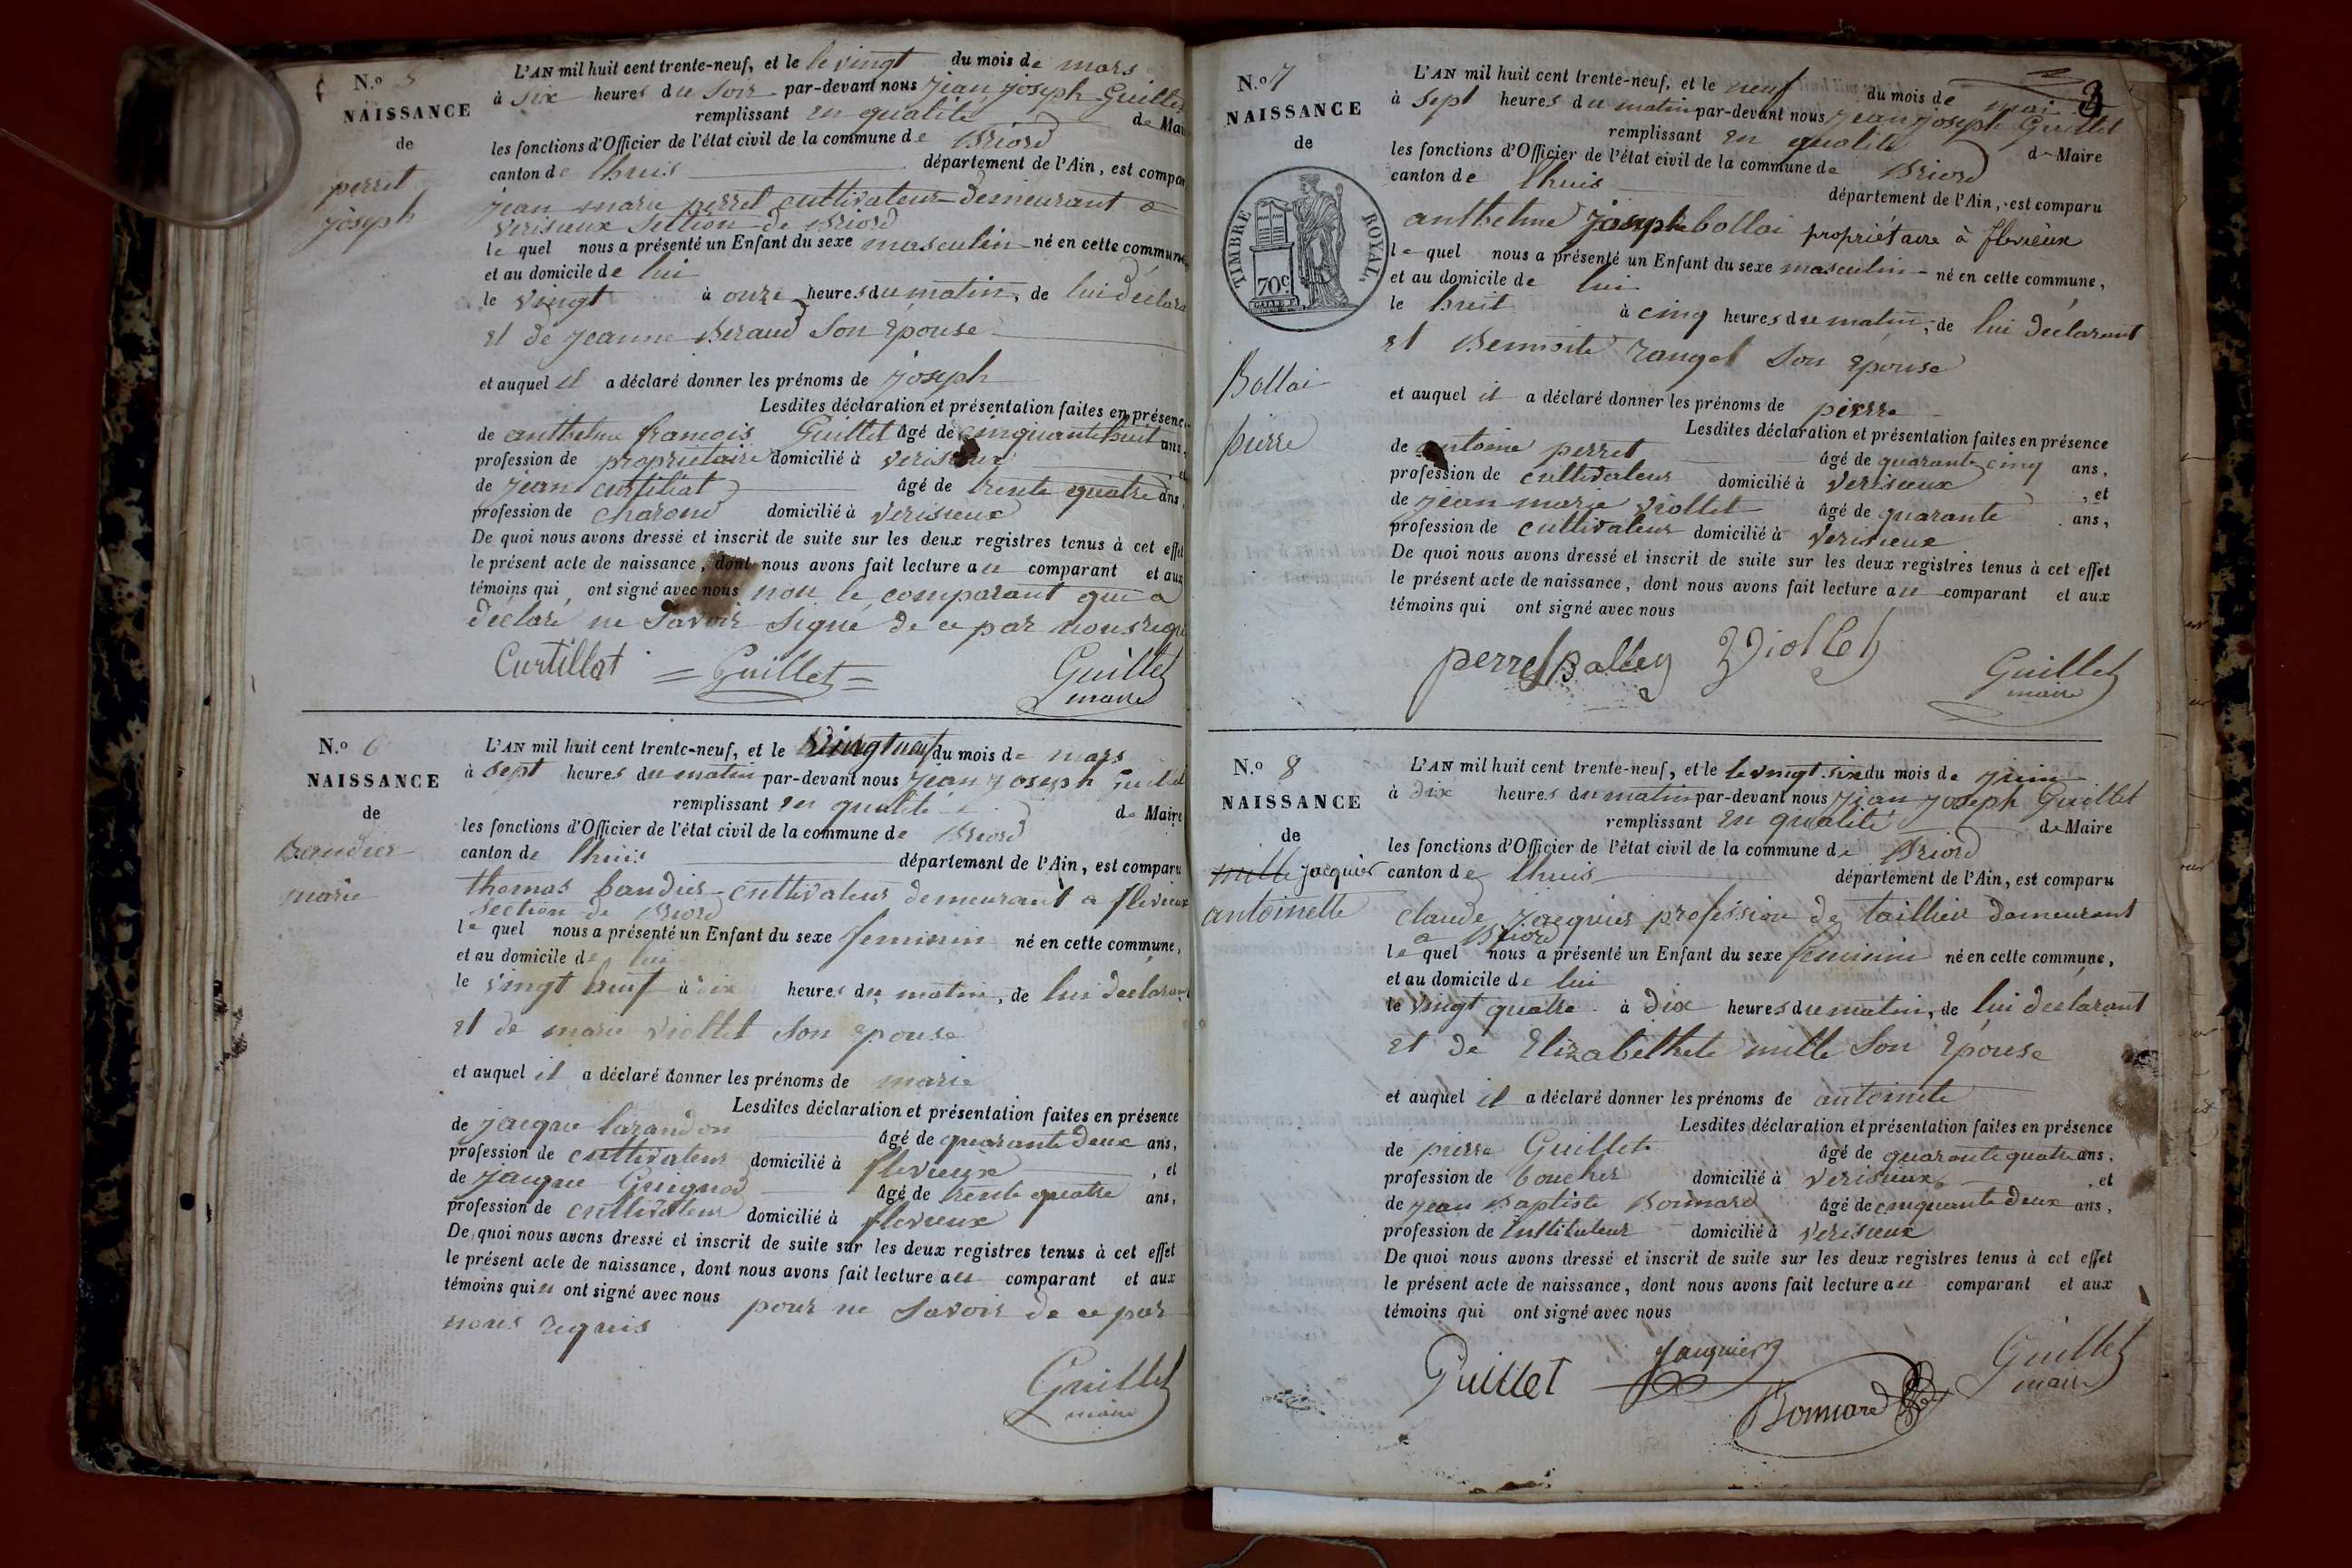 N.º 5
NAISSANCE
de
perret
joseph
L'AN mil huit cent trente-neuf, et le le vingt du mois de mars
à six heures du soir par-devant nous jean joseph Guillet
remplissant en qualité de Mai
les fonctions d'Officier de l'état civil de la commune de Briord
canton de lhuis département de l'Ain, est compar
jean marie perret cultivateur demeurant a
verisieux section de Briord
le quel nous a présenté un Enfant du sexe masculin né en cette commune
et au domicile de lui
le vingt à onze heures du matin, de lui déclara
et de jeanne Beraud son epouse
et auquel il a déclaré donner les prénoms de joseph
Lesdites déclaration et présentation faites en présence
de anthelme francois Guillet âgé de cinquante huit ans,
profession de proprietaire domicilié à verisieux, et
de jean curtillat âgé de trente quatre ans,
profession de charond domicilié à verisieux
De quoi nous avons dressé et inscrit de suite sur les deux registres tenus à cet effet
le présent acte de naissance, dont nous avons fait lecture au comparant et aux
témoins qui ont signé avec nous non le comparant qui a
déclaré ne savoir signé de ce par nous requ
Curtillat Guillet Guillet
maire
N.º 6
NAISSANCE
de
Baudier
marie
L'AN mil huit cent trente-neuf, et le vingt neuf du mois de mars
à sept heures du matin par-devant nous jean joseph Guillet
remplissant en qualité de Maire
les fonctions d'Officier de l'état civil de la commune de Briord
canton de lhuis département de l'Ain, est comparu
thomas baudier cultivateur demeurant a flevieux
section de Briord
le quel nous a présenté un Enfant du sexe feminin né en cette commune,
et au domicile de lui
le vingt heures du matin, de lui declarant
et de marie viollet son epouse
et auquel il a déclaré donner les prénoms de marie
Lesdites déclaration et présentation faites en présence
de jacque larandon âgé de quarante deux ans,
profession de cultivateur domicilié à flevieux, et
de jacque Guignod âgé de trente quatre ans,
profession de cultivateur domicilié à flevieux
De quoi nous avons dressé et inscrit de suite sur les deux registres tenus à cet effet
le présent acte de naissance, dont nous avons fait lecture au comparant et aux
témoins qui n ont signé avec nous pour ne savoir de ce par
nous requis
Guillet
maire
3
N.º 7
NAISSANCE
de
TIMBRE ROYAL
70c
Bollai
pierre
L'AN mil huit cent trente-neuf, et le neuf du mois de mai
à sept heures du matin par-devant nous jean joseph Guillet
remplissant en qualité de Maire
les fonctions d'Officier de l'état civil de la commune de Briord
canton de lhuis département de l'Ain, est comparu
anthelme joseph bollai propriétaire à flevieux
le quel nous a présenté un Enfant du sexe masculin né en cette commune,
et au domicile de lui
le huit à cinq heures du matin, de lui déclarant
et Bennoite son epouse
et auquel il a déclaré donner les prénoms de pierre
Lesdites déclaration et présentation faites en présence
de antoine perret âgé de quarante cinq ans,
profession de cultivateur domicilié à verisieux, et
de jean marie viollet âgé de quarante ans,
profession de cultivateur domicilié à verisieux
De quoi nous avons dressé et inscrit de suite sur les deux registres tenus à cet effet
le présent acte de naissance, dont nous avons fait lecture au comparant et aux
témoins qui ont signé avec nous
perret Balley Viollet Guillet
maire
N.º 8
NAISSANCE
de
mille jacquier
antoinette
L'AN mil huit cent trente-neuf, et le le vingt-six du mois de juin
à dix heures du matin par-devant nous jean joseph Guillet
remplissant en qualité de Maire
les fonctions d'Officier de l'état civil de la commune de Briord
canton de lhuis département de l'Ain, est comparu
claude jacquier profession de taillieu demeurant
a Briord
le quel nous a présenté un Enfant du sexe feminin né en cette commune,
et au domicile de lui
le vingt quatre à dix heures du matin, de lui declarant
et de Elizabethete mille son epouse
et auquel il a déclaré donner les prénoms de antoinete
Lesdites déclaration et présentation faites en présence
de pierre Guillet âgé de quarante quatre ans,
profession de boucher domicilié à verisieux, et
de jean Baptiste Bonnard âgé de cinquante deux ans,
profession de instituteur domicilié à verisieux
De quoi nous avons dressé et inscrit de suite sur les deux registres tenus à cet effet
le présent acte de naissance, dont nous avons fait lecture au comparant et aux
témoins qui ont signé avec nous
Guillet Jacquier Bonnard Guillet
maire